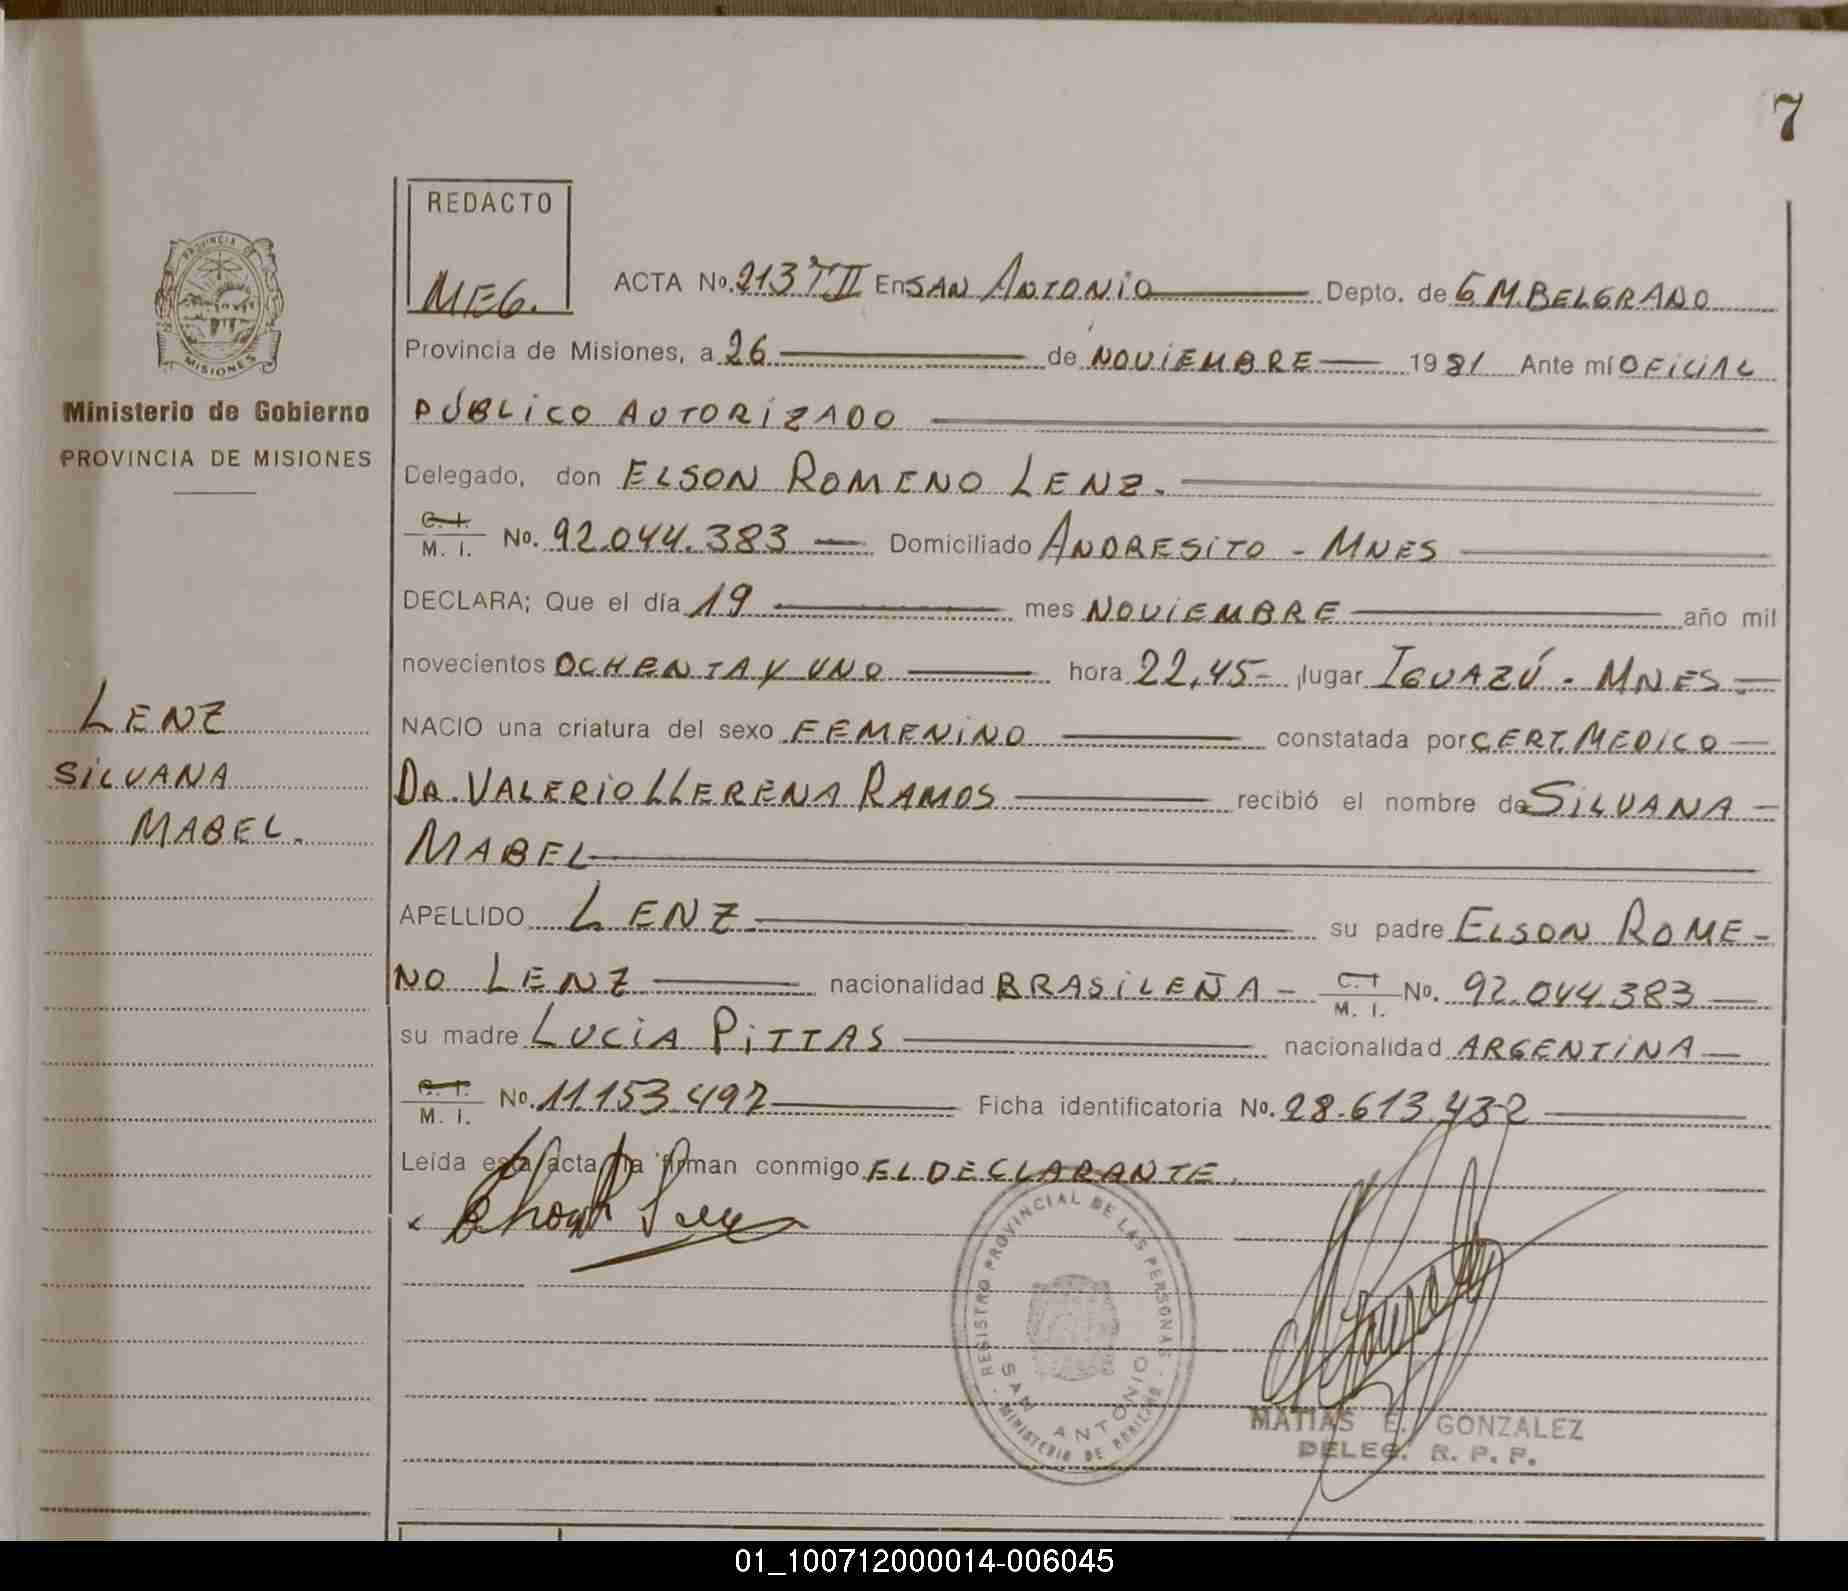 7
REDACTO
MEG.
ACTA No. 213 TII En SAN ANTONIO Depto. de G M. BELGRANO
Provincia de Misiones, a 26 de NOVIEMBRE 1981 Ante mí OFICIAL
PÚBLICO AUTORIZADO
Delegado, don ELSON ROMENO LENZ.
C. I. M. I. No. 92.044.383 Domiciliado ANDRESITO - MNES
DECLARA; Que el día 19 mes NOVIEMBRE año mil
novecientos OCHENTA Y UNO hora 22,45- lugar IGUAZÚ - MNES.
NACIO una criatura del sexo FEMENINO constatada por CERT. MEDICO
DR. VALERIO LLERENA RAMOS recibió el nombre de SILVANA
MABEL
APELLIDO LENZ su padre ELSON ROME-
NO LENZ nacionalidad BRASILEÑA - C. I M. I. No. 92.044.383
su madre LUCIA PITTAS nacionalidad ARGENTINA
C. I. M. I. No. 11.153.497 Ficha identificatoria No. 28.613.432
Leída esta acta la firman conmigo EL DECLARANTE.
PROVINCIA DE
MISIONES
Ministerio de Gobierno
PROVINCIA DE MISIONES
LENZ
SILVANA
MABEL.
REGISTRO PROVINCIAL DE LAS PERSONAS
SAN ANTONIO
MINISTERIO DE
MATIAS E. GONZALEZ
DELEG. R. P. P.
01_100712000014-006045